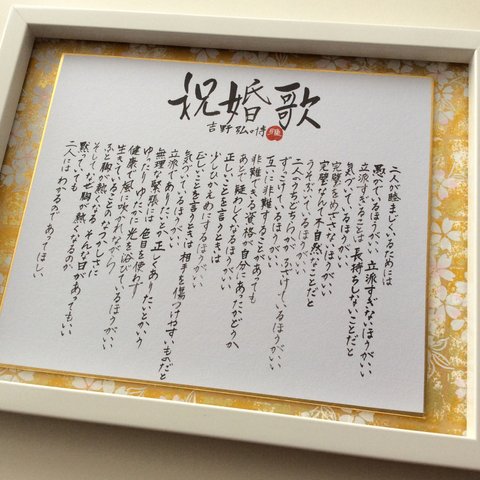 祝婚歌
吉野弘の詩
二人が睦まじくいるためには
愚かでいるほうがいい 立派すぎないほうがいい
立派すぎることは 長持ちしないことだと
気づいているほうがいい
完璧をめざさないほうがいい
完璧なんて不自然なことだと
うそぶいているほうがいい
二人のうちどちらかが ふざけているほうがいい
ずっこけているほうがいい
互いに非難することがあっても
非難できる資格が自分にあったかどうか
あとで疑わしくなるほうがいい
正しいことを言うときは
少しひかえめにするほうがいい
正しいことを言うときは 相手を傷つけやすいものだと
気づいているほうがいい
立派でありたいとか 正しくありたいとかいう
無理な緊張には 色目を使わず
ゆったり ゆたかに 光を浴びているほうがいい
健康で 風に吹かれながら
生きていることのなつかしさに
ふと胸が熱くなる そんな日があってもいい
そして なぜ胸が熱くなるのか
黙っていても
二人には わかるのであってほしい